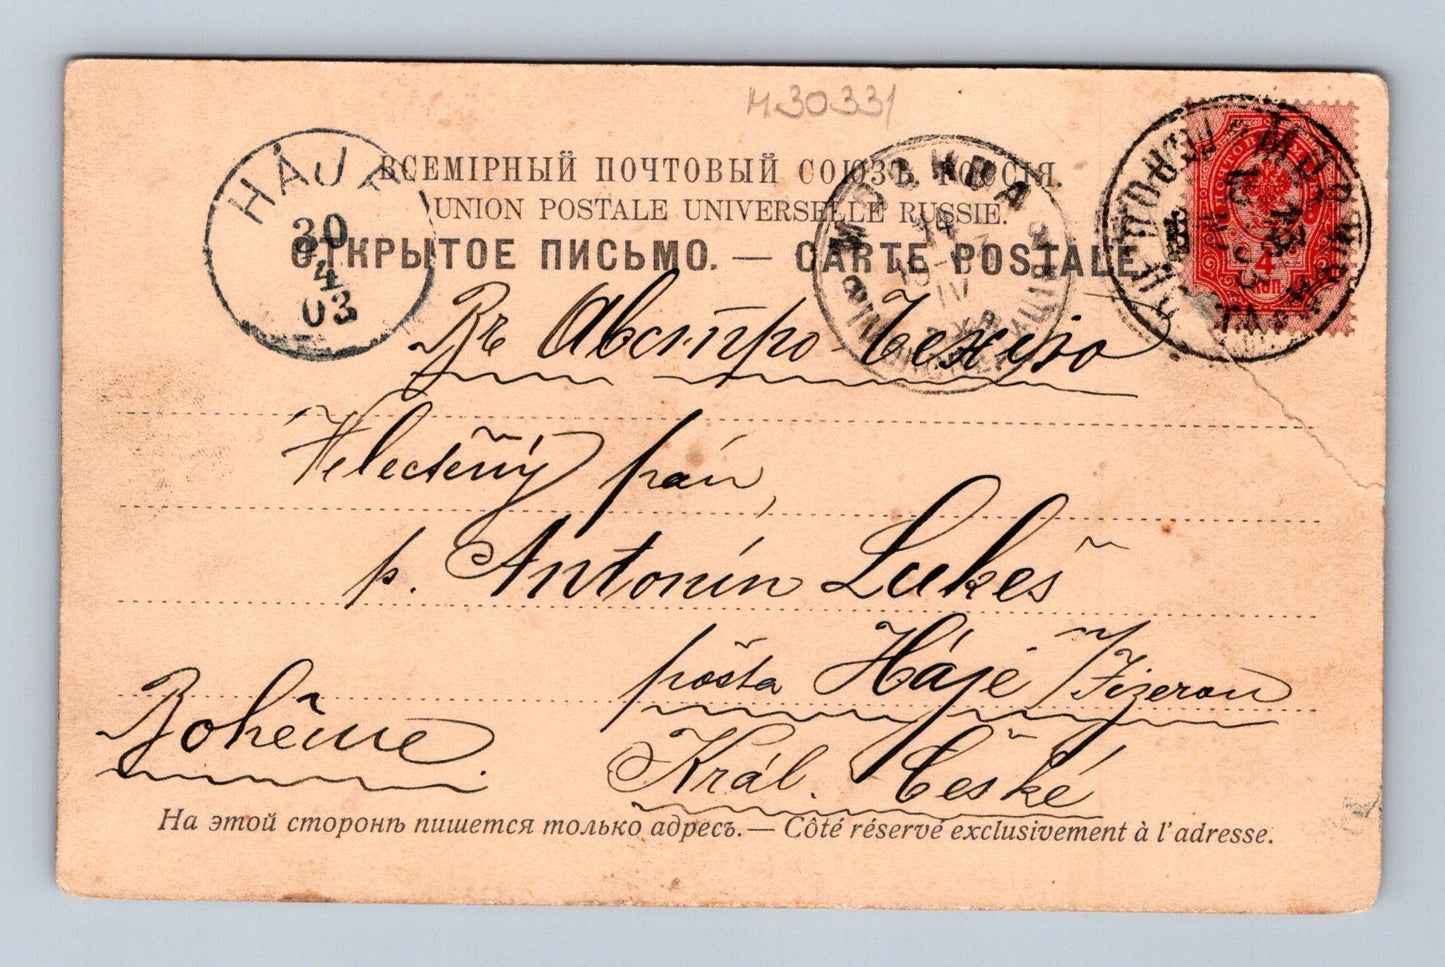 И30331
ВСЕМІРНЫЙ ПОЧТОВЫЙ СОЮЗЪ РОССІЯ.
UNION POSTALE UNIVERSELLE RUSSIE.
ОТКРЫТОЕ ПИСЬМО. — CARTE POSTALE
HÁJE
30
4
03
МОСКВА
14
IV
4
КОП
Въ Австро-Чехію
Velectěný pán,
p. Antonín Lukeš
pošta Háje /Jizerou
Král. České
Bohême.
На этой сторонѣ пишется только адресъ.— Côté réservé exclusivement à l'adresse.